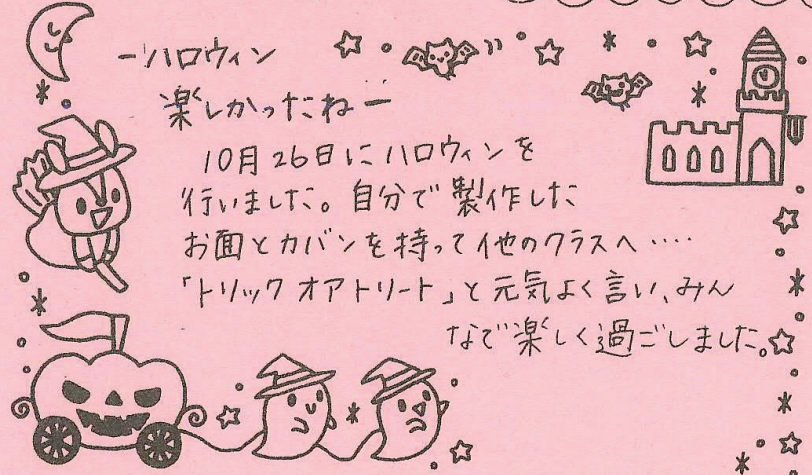 ーハロウィン
楽しかったねー
10月26日にハロウィンを
行いました。自分で製作した
お面とカバンを持って他のクラスへ‥‥
「トリックオアトリート」と元気よく言い、みん
なで楽しく過ごしました。